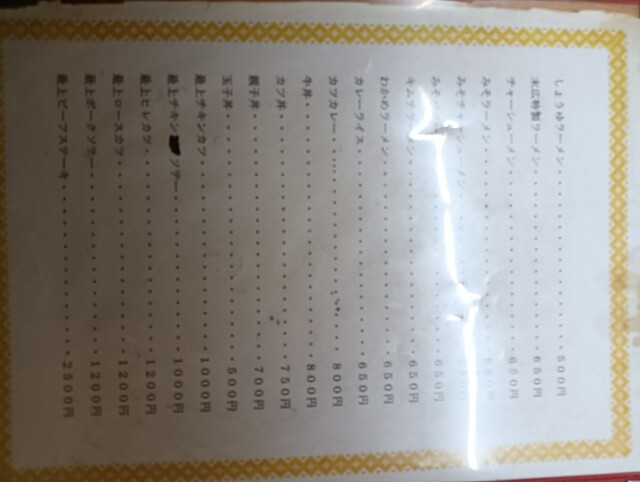 しょうゆラーメン・・・・・・・・・・・・・・・500円
末広特製ラーメン・・・・・・・・・・・・・・・650円
チャーシューメン・・・・・・・・・・・・・・・650円
みそラーメン・・・・・・・・・・・・・・・
みそチ
みそ ・・・・・・・・・・・・・・・650円
キムチラーメン・・・・・・・・・・・・・・・650円
わかめラーメン・・・・・・・・・・・・・・・650円
カレーライス・・・・・・・・・・・・・・・650円
カツカレー・・・・・・・・・・・・・・・800円
牛丼・・・・・・・・・・・・・・・800円
カツ丼・・・・・・・・・・・・・・・750円
親子丼・・・・・・・・・・・・・・・700円
玉子丼・・・・・・・・・・・・・・・500円
最上チキンカツ・・・・・・・・・・・・・・・1000円
最上チキンソテー・・・・・・・・・・・・・・・1000円
最上ヒレカツ・・・・・・・・・・・・・・・1200円
最上ロースカツ・・・・・・・・・・・・・・・1200円
最上ポークソテー・・・・・・・・・・・・・・・1200円
最上ビーフステーキ・・・・・・・・・・・・・・・2500円